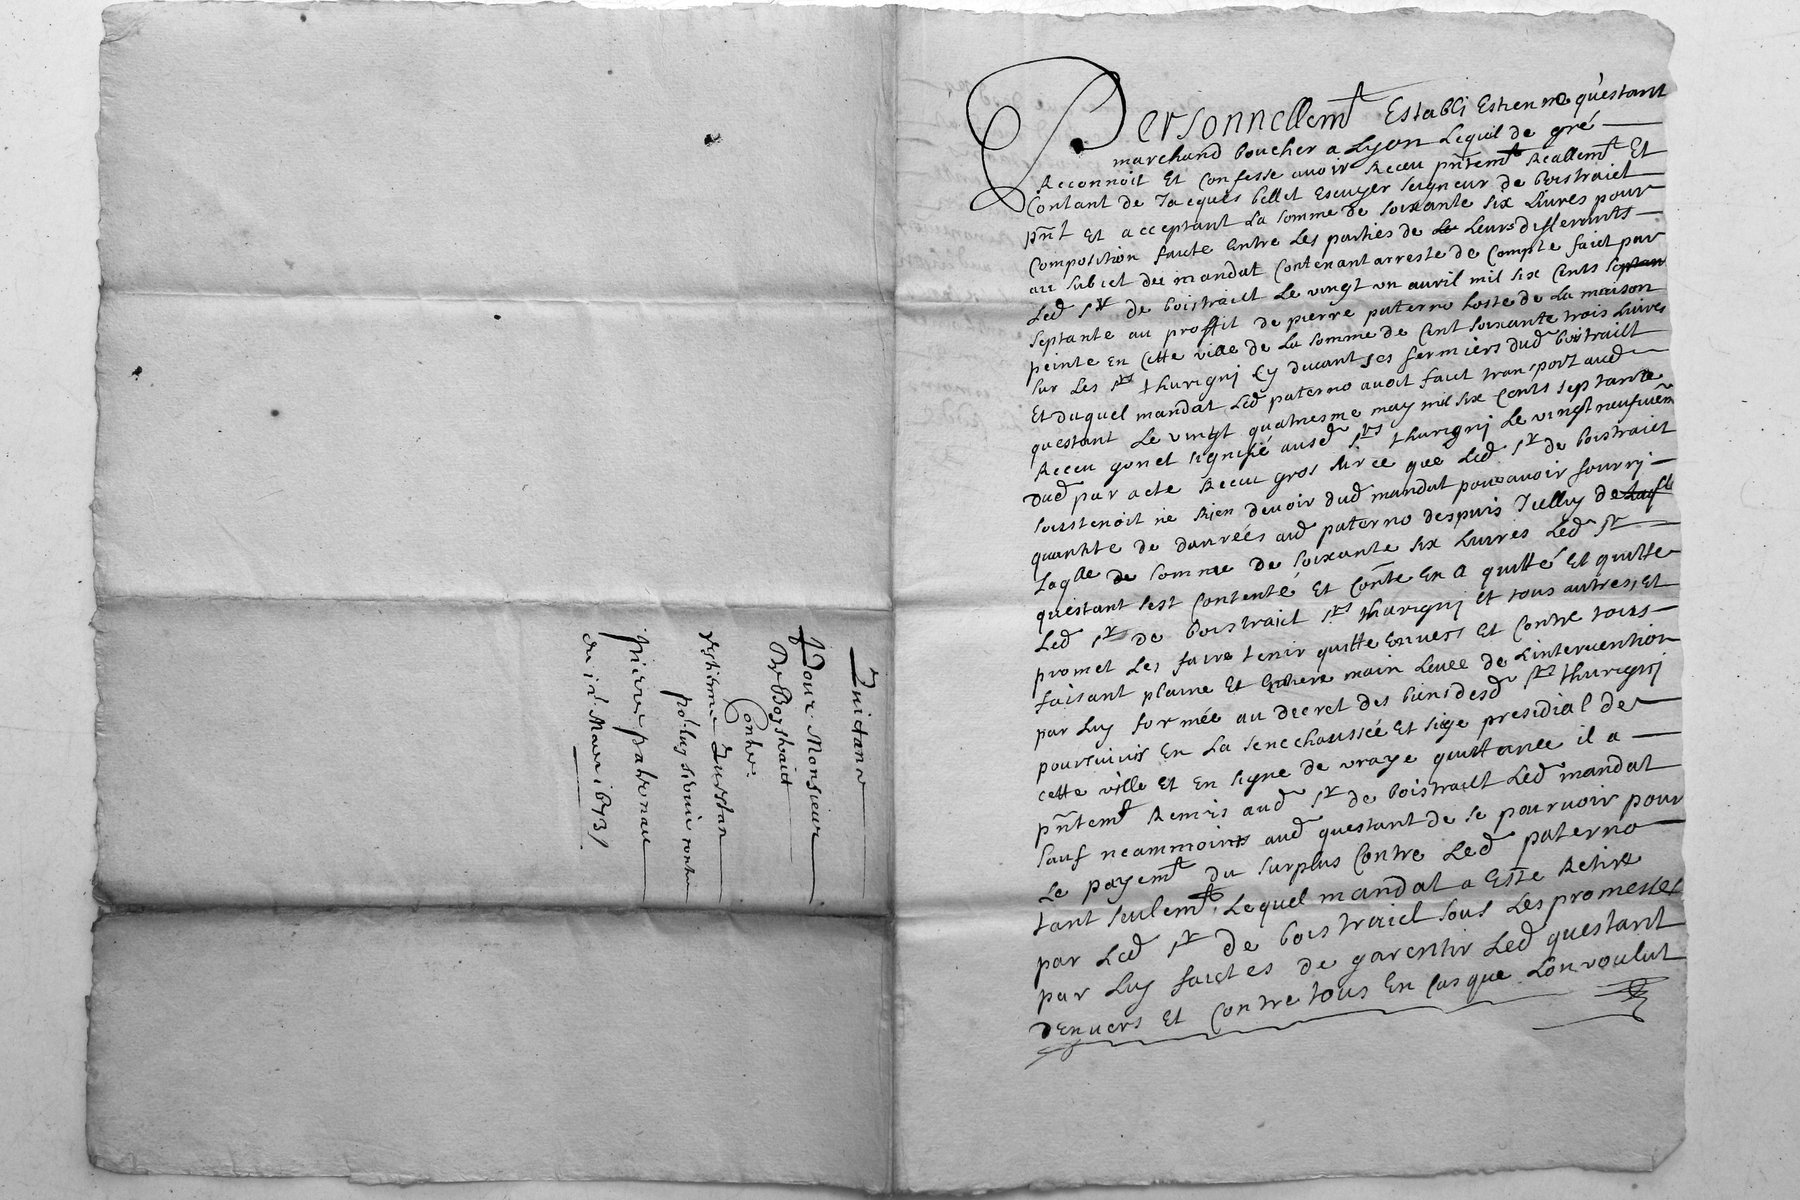 Quictance
Pour Monsieur
De Boystraict
Contre
Estienne Questan
pierre paterneau
du ii Mars 1673
Personnellemt Establi Estienne questant
marchand boucher a Lyon Lequel de gré
Reconnoit Et Confesse avoir Receu pntemt Reallemt Et
Contant de Jacques bellet Escuyer Seigneur de boistraict
pnt Et acceptant La somme de soixante six Livres pour
Composition faicte Entre Les parties de Leurs differants
au subiet du mandat Contenant arreste de Compte faict par
Led Sr de boistraict Le vingt un avril mil six Cents
septante au proffit de pierre paterno hoste de La maison
peinte En Cette ville de La somme de Cent soixante trois Livres
sur Les Srs thurigni Cy devant ses fermiers dud boistraict
Et duquel mandat Led paterno avoit faict transport aud
questant Le vingt quatriesme may mil six Cents septante
Receu gonet signifié ausd Srs thurigni Le vingt neufviem
dud par acte Receu gros sur ce que Led Sr de boistraict
soustenoit ne Rien devoir dud mandat pour avoir fourni
quantite de danrées aud paterno despuis Jullij
Laqlle somme de soixante six Livres Led Sr
questant s'est Contenté Et Conte En a quitté Et quitte
Led Sr de boistraict Srs thurigni Et tous autres, Et
promet Les faire tenir quitte Envers Et Contre tous
faisant plaine Et Entiere main Levee de L'intervention
par Luy formée au decret des biens desd Srs thurigni
poursuivis En La senechaussée Et siege presidial de
cette ville Et En signe de vraye quittance il a
pntemt Remis aud Sr de boistraict Led mandat
sauf neammoins aud questant de se pourvoir pour
Le payemt du surplus Contre Led paterno
tant seulemt, Lequel mandat a Esté Retiré
par Led Sr de boistraict sous Les promesses
par Luy faictes de garentir Led questant
dEnvers Et Contre tous En Cas que L'on voulut